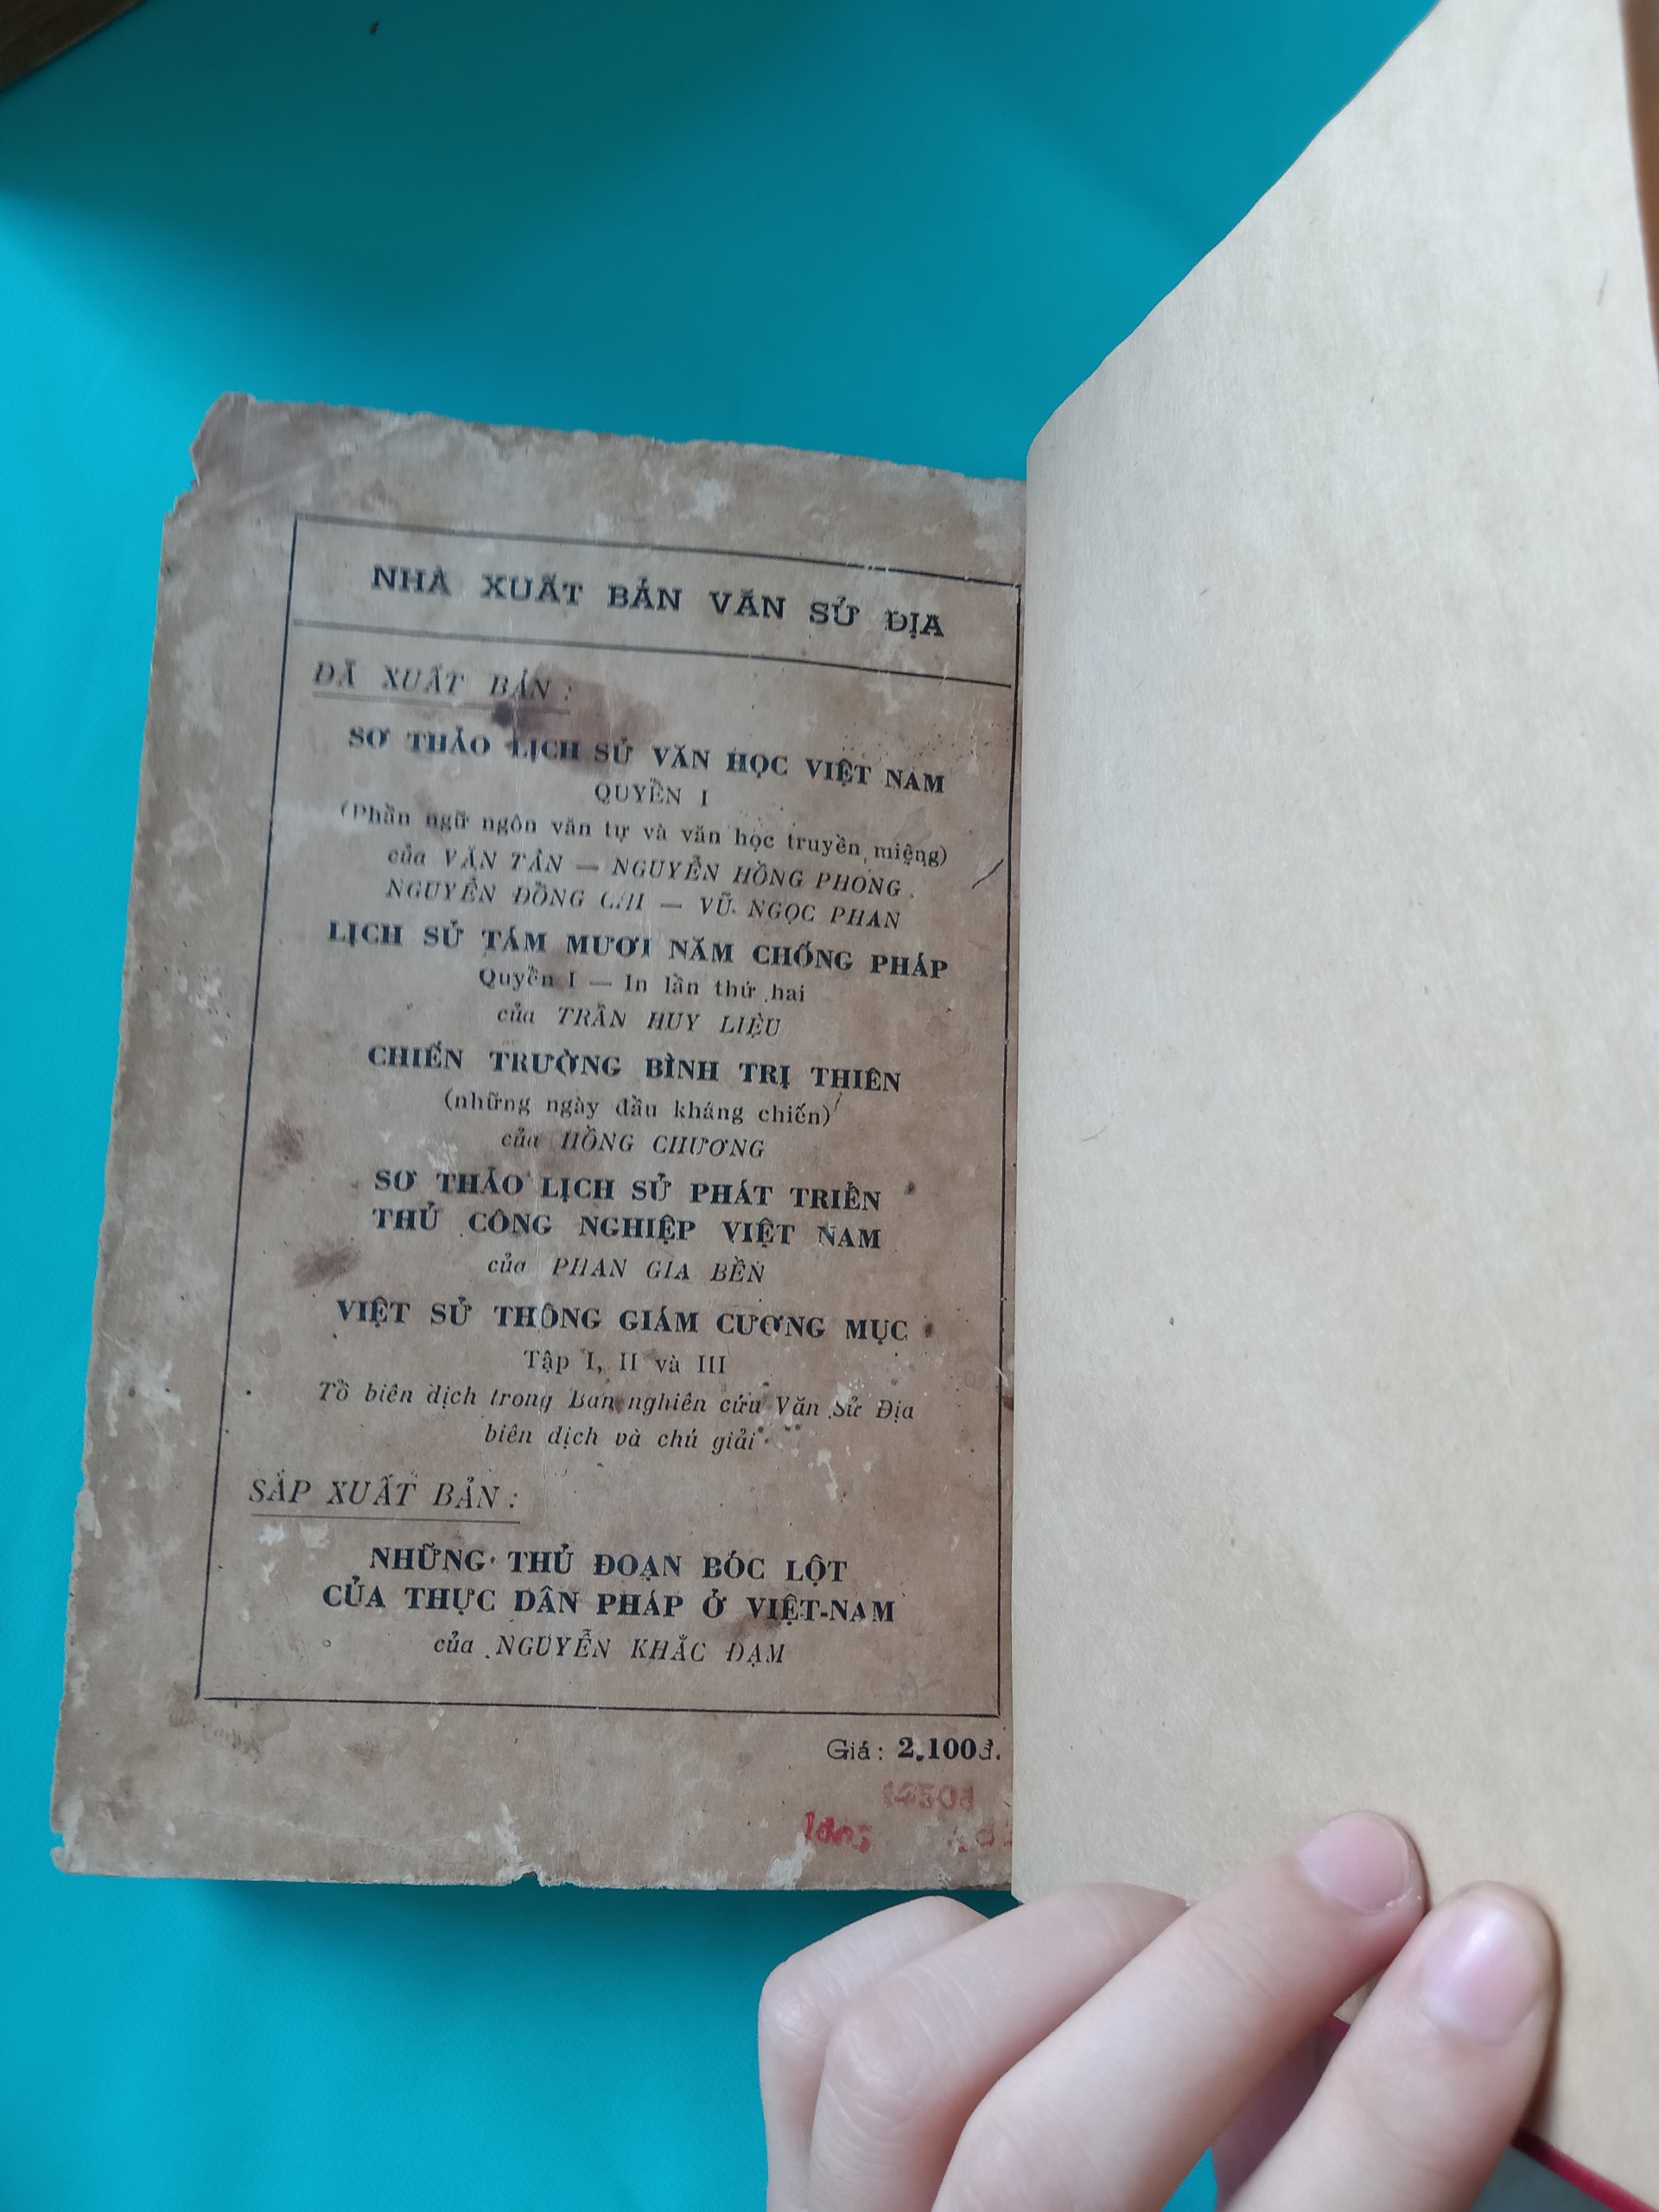 NHÀ XUẤT BẢN VĂN SỬ ĐỊA
ĐÃ XUẤT BẢN :
SƠ THẢO LỊCH SỬ VĂN HỌC VIỆT NAM
QUYỂN I
(Phần ngữ ngôn văn tự và văn học truyền miệng)
của VĂN TÂN — NGUYỄN HỒNG PHONG
NGUYỄN ĐỒNG CHI — VŨ NGỌC PHAN
LỊCH SỬ TÁM MƯƠI NĂM CHỐNG PHÁP
Quyển I — In lần thứ hai
của TRẦN HUY LIỆU
CHIẾN TRƯỜNG BÌNH TRỊ THIÊN
(những ngày đầu kháng chiến)
của HỒNG CHƯƠNG
SƠ THẢO LỊCH SỬ PHÁT TRIỂN
THỦ CÔNG NGHIỆP VIỆT NAM
của PHAN GIA BỀN
VIỆT SỬ THÔNG GIÁM CƯƠNG MỤC
Tập I, II và III
Tổ biên dịch trong Ban nghiên cứu Văn Sử Địa
biên dịch và chú giải
SẮP XUẤT BẢN :
NHỮNG THỦ ĐOẠN BÓC LỘT
CỦA THỰC DÂN PHÁP Ở VIỆT-NAM
của NGUYỄN KHẮC ĐẠM
Giá : 2.100đ.